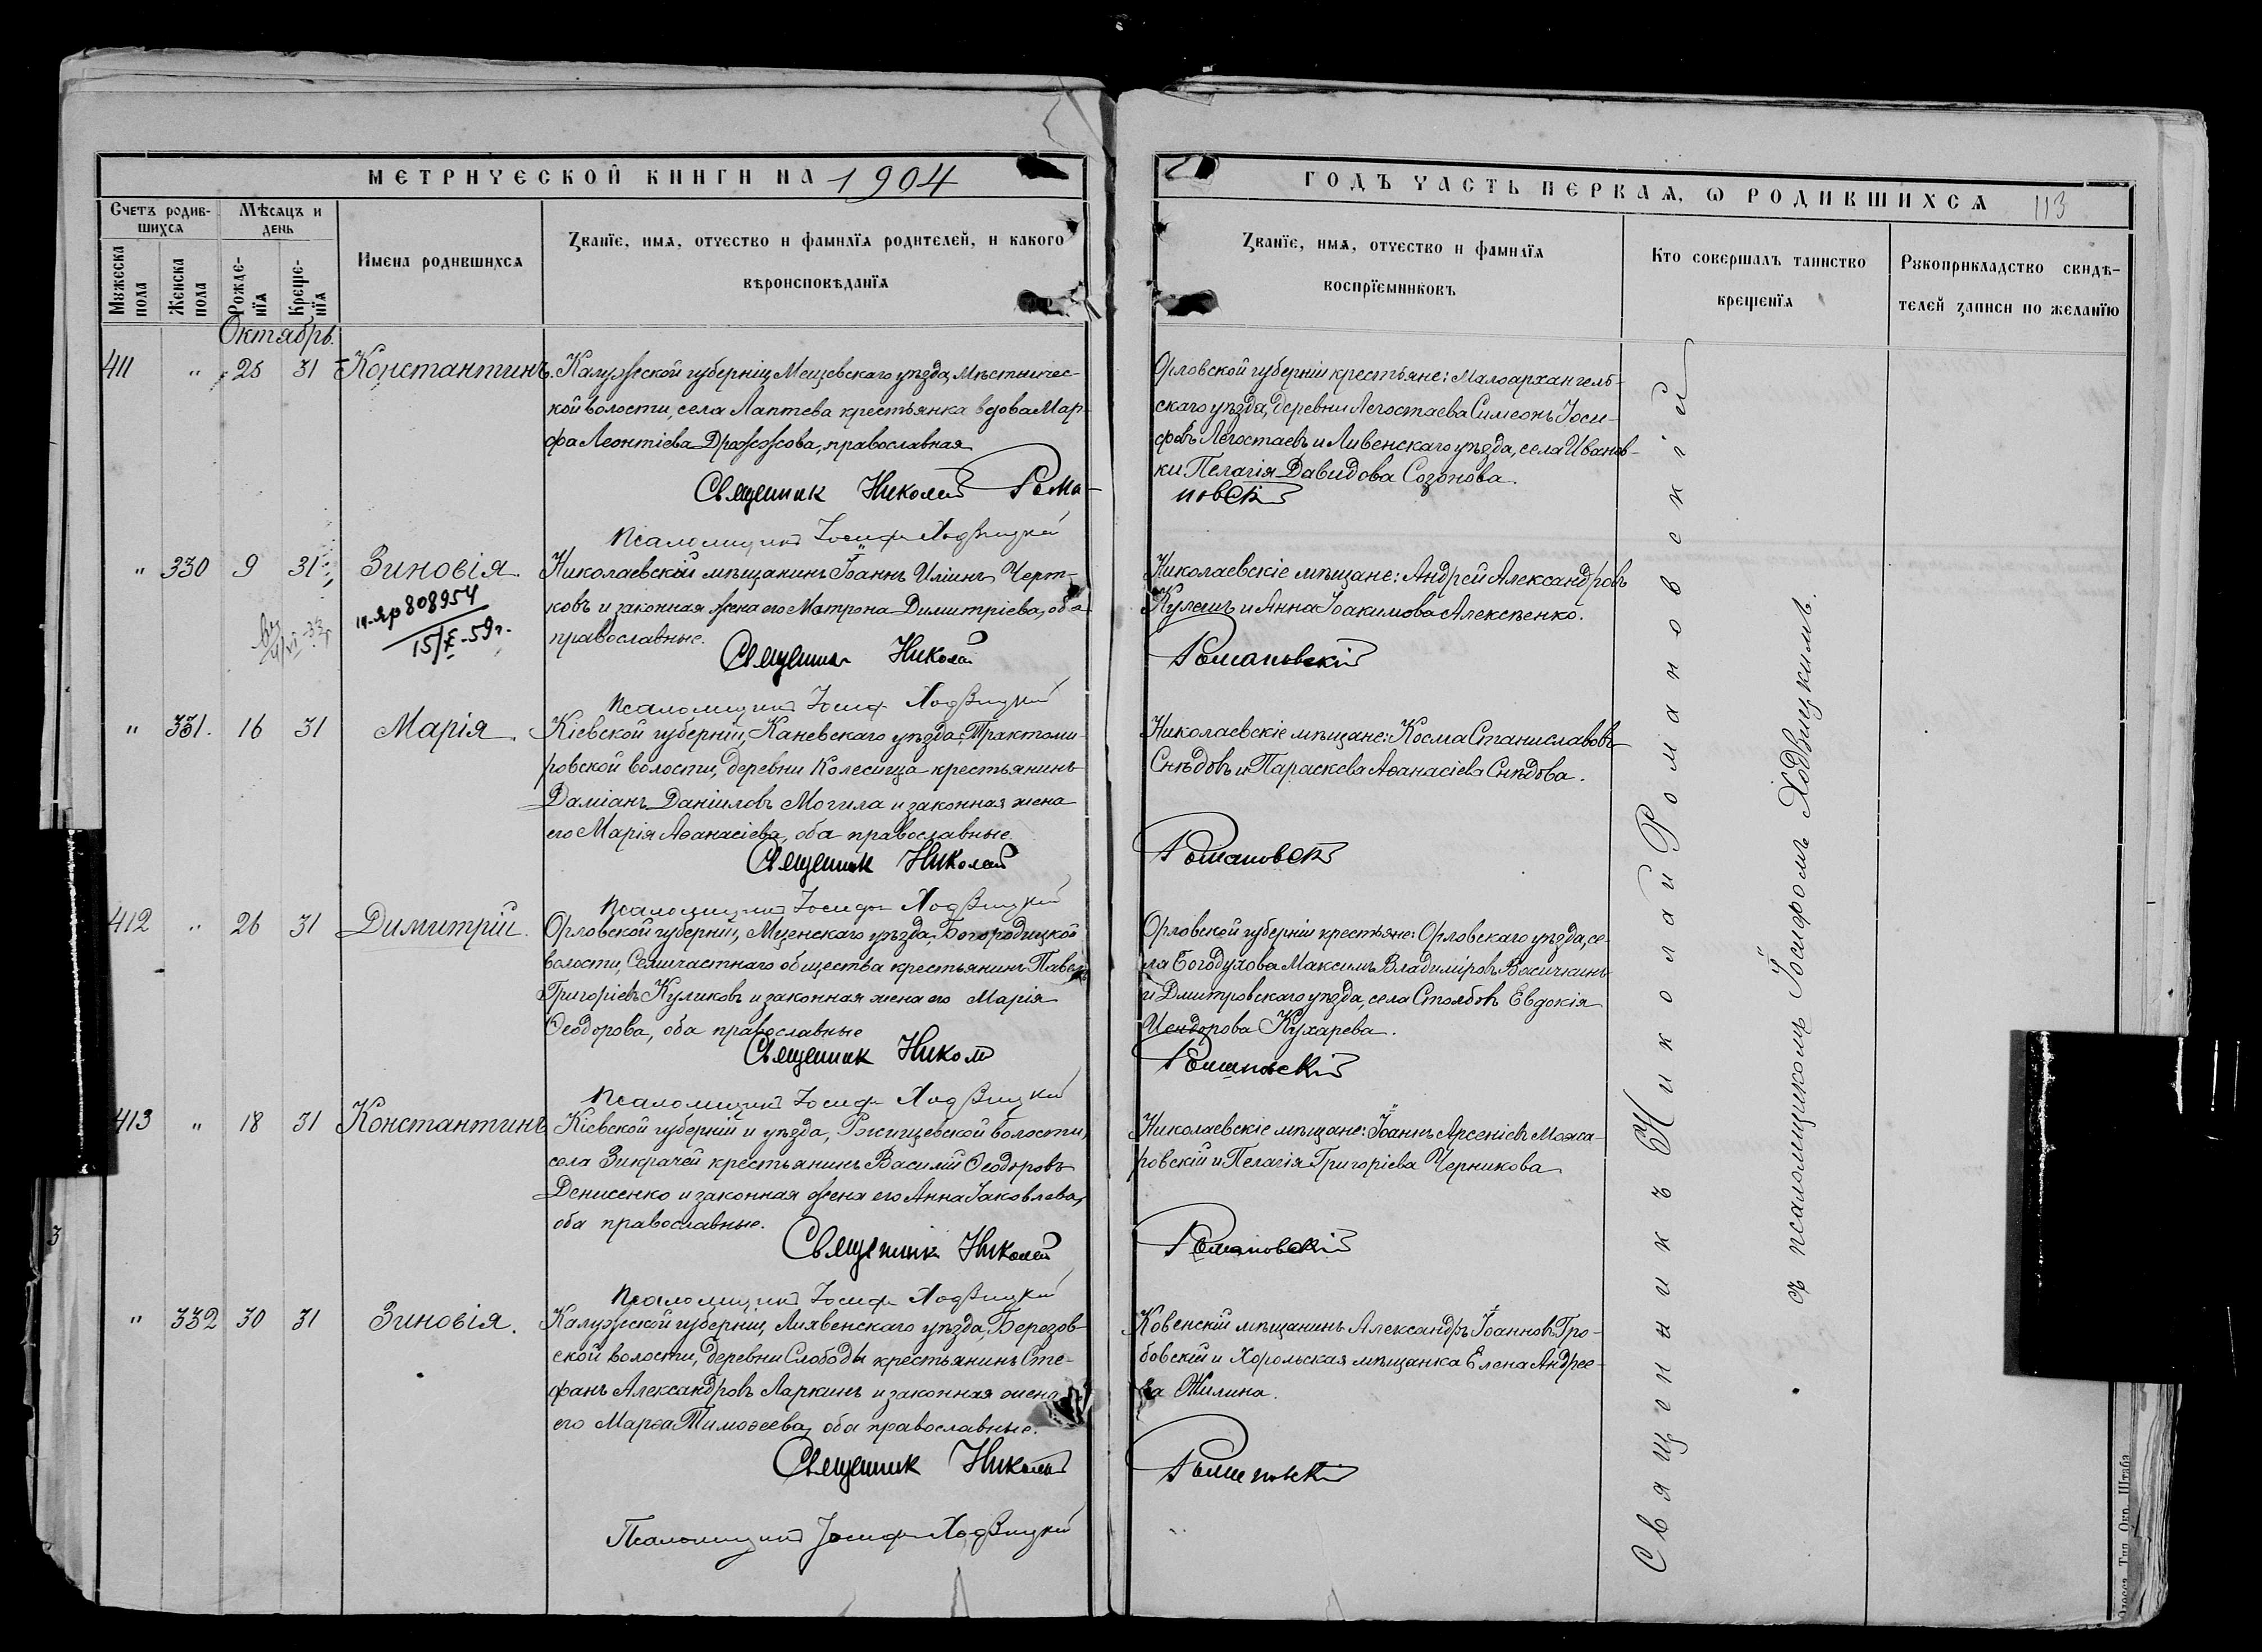 МЕТРИЧЕСКОЙ КНИГИ НА 1904
ГОДЪ ЧАСТЬ ПЕРВАЯ, Ѡ РОДИВШИХСЯ 113
Счетъ родив-
шихся
Мѣсяцъ и
день
Мужеска
пола
Женска
пола
Рожде-
нїя
Креще-
нїя
Имена родившихся
Званїе, имя, отчество и фамилїя родителей, и какого
вѣроисповѣданїя
Званїе, имя, отчество и фамилїя
воспрїемниковъ
Кто совершалъ таинство
крещенїя
Рукоприкладство свидѣ-
телей записи по желанїю
Октябрь.
411 " 25 31 Константинъ.
Калужской губерніи, Мещевскаго уѣзда, Мѣстничес-
кой волости, села Лаптева крестьянка вдова Мар-
фа Леонтіева Дрожжова, православная
Священник Николай Рома-
Псаломщикъ Іосифъ Ходзицкій
Орловской губерніи крестьяне: Малоархангель-
скаго уѣзда, деревни Легостаева Симеонъ Іоси-
фовъ Легостаевъ и Ливенскаго уѣзда, села Иванов-
ки Пелагія Давидова Созонова.
новскій
" 330 9 31 Зиновія.
н-яр 808954
15/X-59г.
Николаевскій мѣщанинъ Іоаннъ Иліинъ Черт-
ковъ и законная жена его Матрона Димитріева, оба
православные.
Священник Николай
Псаломщикъ Іосифъ Ходзицкій
Николаевскіе мѣщане: Андрей Александровъ
Кулешъ и Анна Іоакимова Алексѣенко.
Романовскій
" 331. 16 31 Марія.
Кіевской губерніи, Каневскаго уѣзда, Трактоми-
ровской волости, деревни Колесища крестьянинъ
Даміанъ Даніиловъ Могила и законная жена
его Марія Аѳанасіева, оба православные.
Священник Николай
Псаломщикъ Іосифъ Ходзицкій
Николаевскіе мѣщане: Косма Станиславовъ
Снѣдовъ и Параскева Аѳанасіева Снѣдова.
Романовскій
412 " 26 31 Димитрій.
Орловской губерніи, Мценскаго уѣзда, Богородицкой
волости, Семичастнаго общества крестьянинъ Павелъ
Григоріевъ Куликовъ и законная жена его Марія
Ѳеодорова, оба православные
Священник Николай
Псаломщикъ Іосифъ Ходзицкій
Орловской губерніи крестьяне: Орловскаго уѣзда, се-
ла Богодухова Максимъ Владиміровъ Васичкинъ
и Дмитровскаго уѣзда, села Столбовъ Евдокія
Исидорова Кухарева.
Романовскій
413 " 18 31 Константинъ
Кіевской губерніи и уѣзда, Ржищевской волости,
села Зикрачей крестьянинъ Василій Ѳеодоровъ
Денисенко и законная жена его Анна Іаковлева,
оба православные.
Священник Николай
Псаломщикъ Іосифъ Ходзицкій
Николаевскіе мѣщане: Іоаннъ Арсеніевъ Можа-
ровскій и Пелагія Григоріева Черникова
Романовскій
" 332 30 31 Зиновія.
Калужской губерніи, Лихвенскаго уѣзда, Березов-
ской волости, деревни Слободы крестьянинъ Сте-
фанъ Александровъ Ларкинъ и законная жена
его Марѳа Тимоѳеева, оба православные.
Священник Николай
Псаломщикъ Іосифъ Ходзицкій
Ковенскій мѣщанинъ Александръ Іоанновъ Гро-
бовскій и Хорольская мѣщанка Елена Андрее-
ва Жилина.
Романовскій
Священникъ Николай Романовскій
съ псаломщикомъ Іосифомъ Ходзицкимъ.
Одесса. Тип. Окр. Штаба